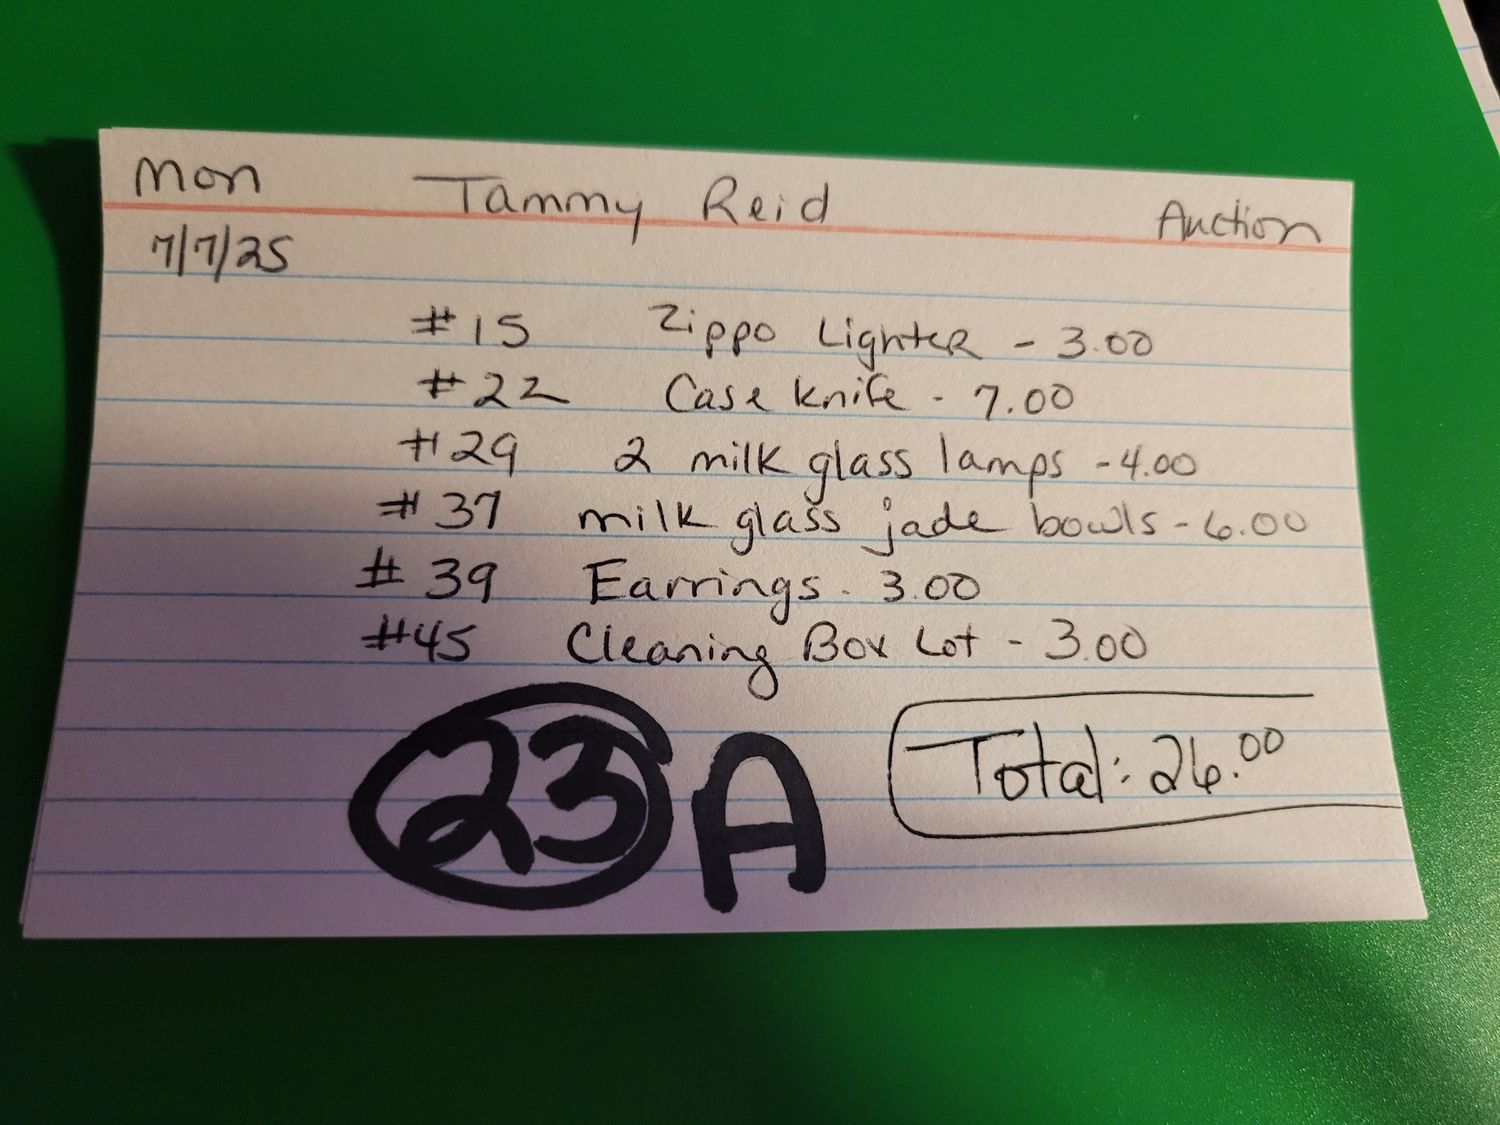 Mon Tammy Reid Auction
7/7/25
#15 Zippo Lighter - 3.00
#22 Case knife - 7.00
#29 2 milk glass lamps - 4.00
#37 milk glass jade bowls - 6.00
#39 Earrings - 3.00
#45 Cleaning Box Lot - 3.00
23 A Total: 26.00